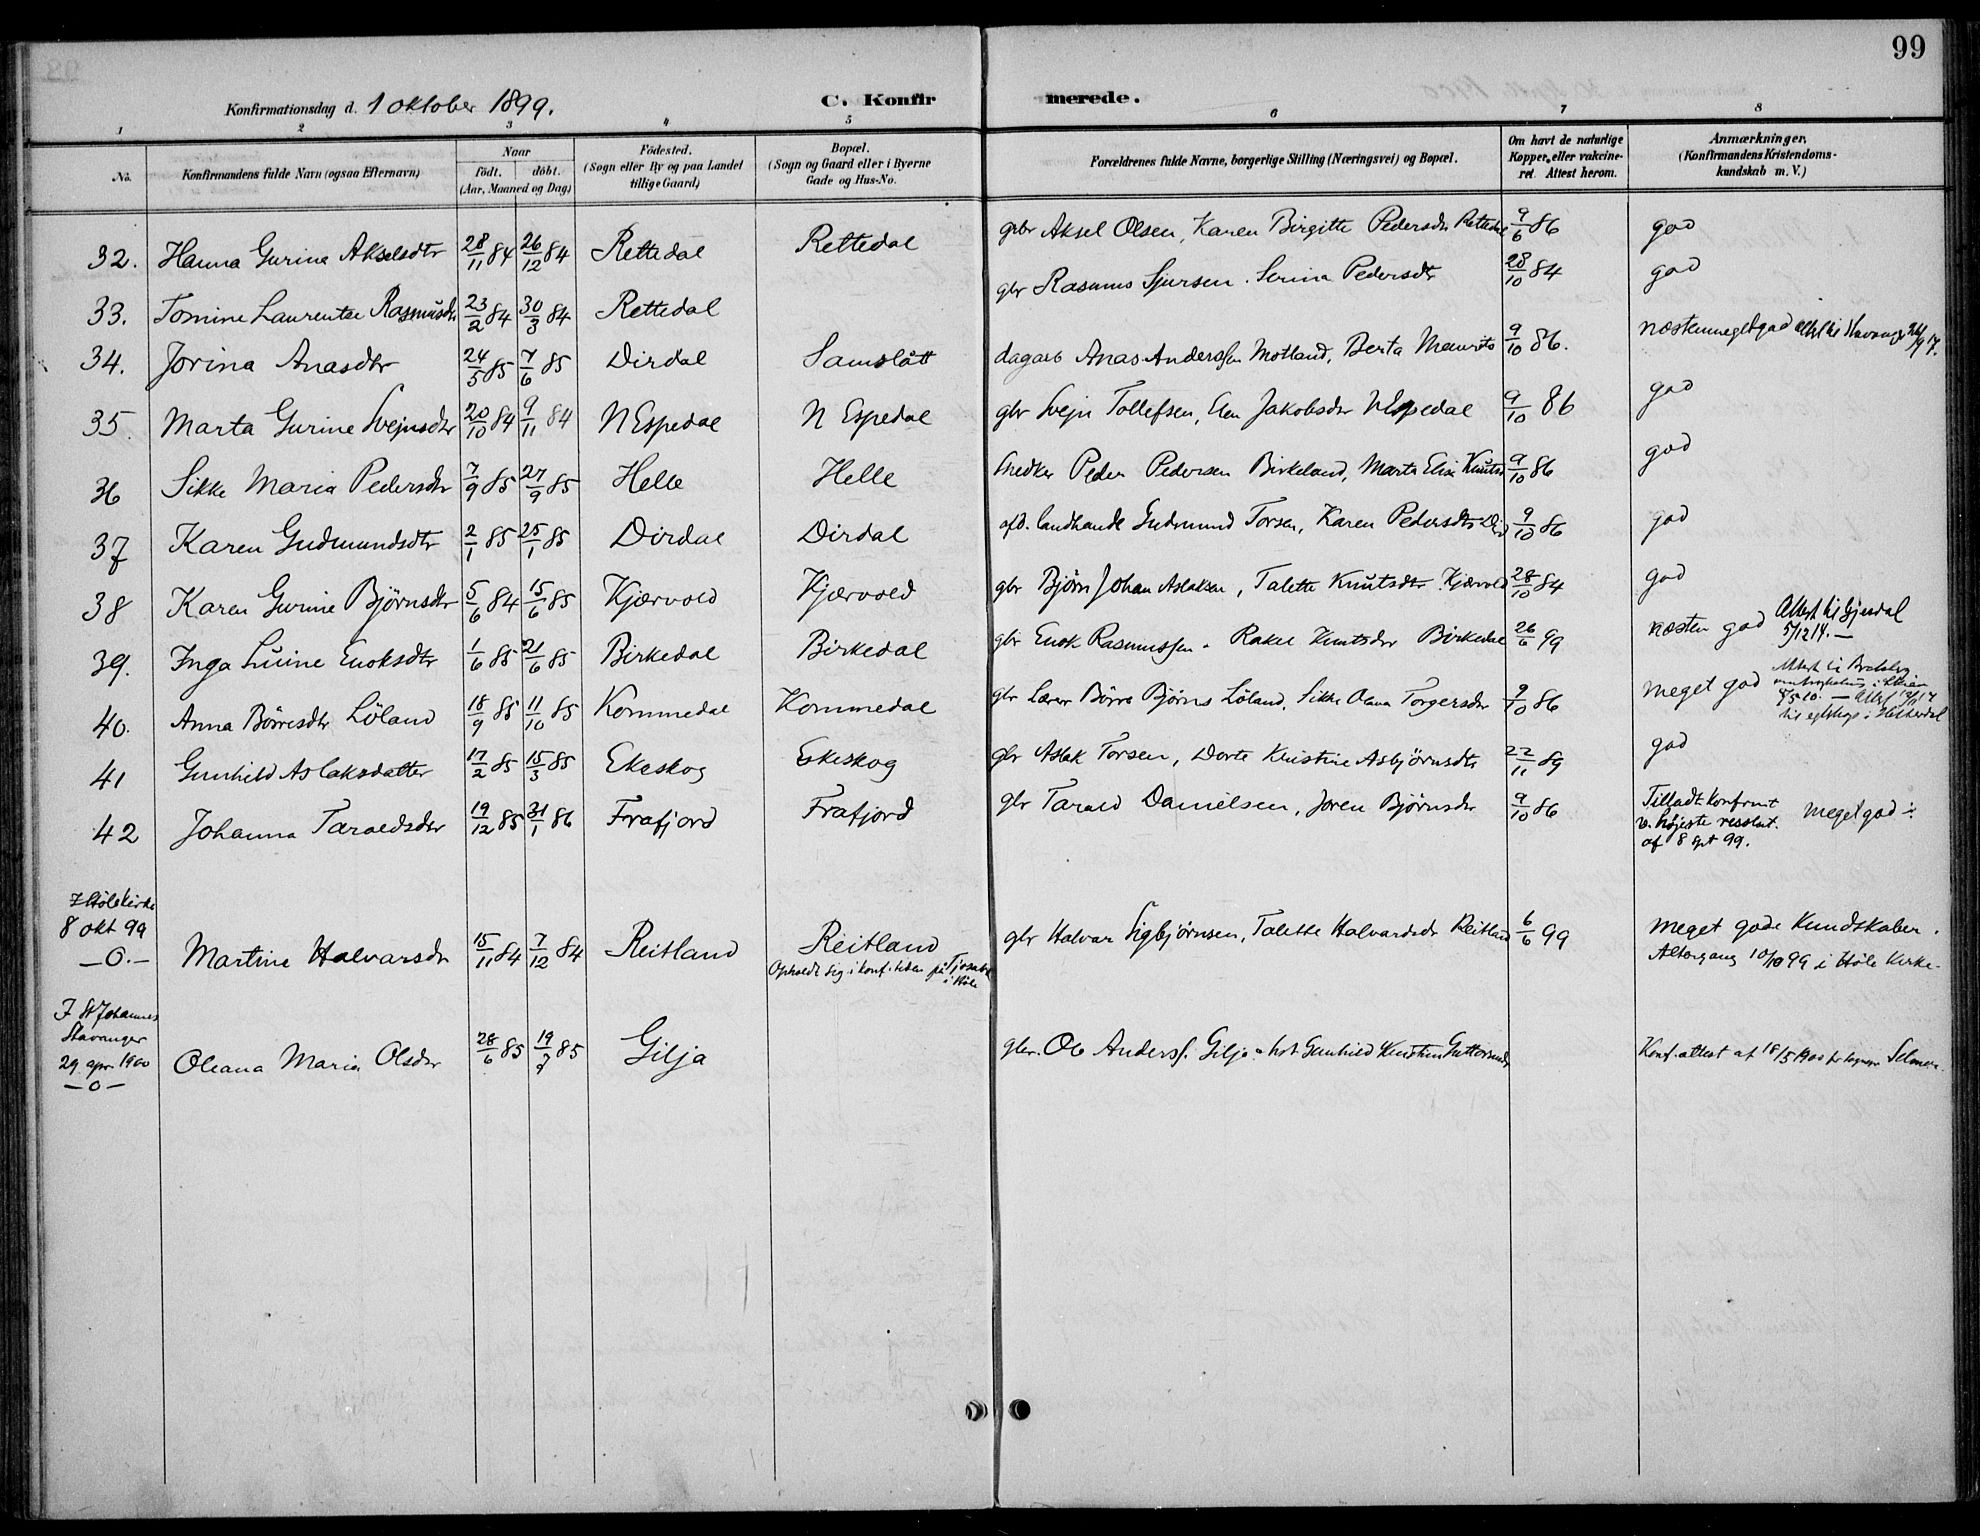 99
Konfirmationsdag d. 1 oktober 1899.
C. Konfirmerede.
1 2 3 4 5 6 7 8
No. Konfirmandens fulde Navn (ogsaa Efternavn) Naar födt. döbt. (Aar, Maaned og Dag) Födested. (Sogn eller By og paa Landet tillige Gaard) Bopæl. (Sogn og Gaard eller i Byerne Gade og Hus-No. Forældrenes fulde Navne, borgerlige Stilling (Næringsvei) og Bopæl. Om havt de naturlige Kopper, eller vakcineret. Attest herom. Anmærkninger. (Konfirmandens Kristendomskundskab m. V.)
32. Hanna Gurine Akselsdtr 28/11 84 26/12 84 Rettedal Rettedal gbr Aksel Olsen, Karen Birgitte Pedersdtr Rettedal 9/6 86 god
33. Tomine Laurentse Rasmusdtr 23/2 84 30/3 84 Rettedal gbr Rasmus Sjursen. Serina Pedersdtr 28/10 84 god
34. Jorina Anasdtr 24/5 85 7/6 85 Dirdal Samslått dagarb Anas Anderssen Motland, Berta Maurits 9/10 86. næsten meget god
35. Marta Gurine Svejnsdtr 20/10 84 9/11 84 N Espedal N Espedal gbr Svejn Tollefsen, Jakobsdtr N Espedal 9/10 86 god
36 Sikke Maria Pedersdtr 7/9 85 27/9 85 Helle Helle Snedker Peder Pedersen Birkeland, Marta Elise Knuts 9/10 86 god
37 Karen Gudmundsdtr 2/1 85 25/1 85 Dirdal Dirdal afd. landhandl Gudmund Torsen, Karen Pedersdtr Dird 9/10 86 god
38 Karen Gurine Björnsdtr 5/6 84 15/6 85 Kjærvold Kjærvold gbr Björn Johan Aslaksen, Talette Knutsdtr Kjærvold 28/10 84 god
39. Inga Enoksdtr 1/6 85 21/6 85 Birkedal Birkedal gbr Enok Rasmussen - Rakel Knutsdtr Birkedal 26/6 99 næsten god Attest til Gjesdal 5/12 14. —
40. Anna Börresdtr Löland 18/9 85 11/10 85 Kommedal Kommedal gbr Lærer Börre Björns Löland, Sikke Olava Torgersdtr 9/10 86 meget god
41 Gunhild Aslaksdatter 17/2 85 15/3 85 Ekeskog Ekeskog gbr Aslak Torsen, Dorte Kristine Asbjörnsdtr 22/11 89 god
42 Johanna Taraldsdtr 19/12 85 31/1 86 Frafjord Frafjord gbr Tarald Danielsen, Joren Björnsdtr 9/10 86 Tilladt konfirmt v. højeste resolut. af 8 spt 99. meget god
I Höle Kirke
8 okt 99
—O.— Martine Halvarsdtr 15/11 84 7/12 84 Reitland Reitland gbr Halvar Sigbjörnsen, Talette Halvardsdtr Reitland 6/6 99 meget gode Kundskaber.
Opholdt sig i konf. tiden på i Höle
Altergang 10/10 99 i Höle Kirke.
I St Johannes
Stavanger
29 apr 1900
—O— Oleana Maria Olsdtr 28/6 85 19/7 85 Gilja gbr. Ole Anderss. Gilja - hst Gunhild Kirstine Guttormsdtr Konf. attest af 18/5 1900 fr sogneprs